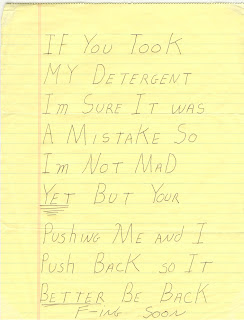 IF YOU TOOK
MY DETERGENT
I'M SURE IT WAS
A MISTAKE SO
I'M NOT MAD
YET BUT YOUR
PUSHING ME AND I
PUSH BACK SO IT
BETTER BE BACK
F-ING SOON